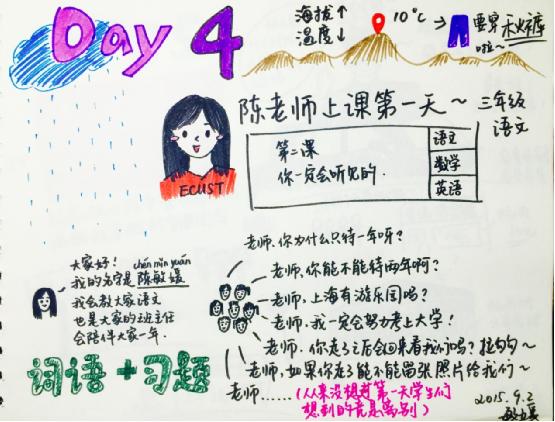 Day 4
海拔↑
温度↓
10℃ → 要穿秋裤
啦~
陈老师上课第一天~
三年级
语文
ECUST
第二课
你一定会听见的.
语文
数学
英语
老师.你为什么只待一年呀?
老师,你能不能待两年啊?
老师,上海有游乐园吗?
老师.我一定会努力考上大学!
老师.你走了之后会回来看我们吗?拉钩~
老师,如果你走了能不能留张照片给我们~
老师……(从来没想到第一天学生们
想到的竟是离别)
大家好! chén mǐn yuán
我的名字是陈敏媛
我会教大家语文
也是大家的班主任
会陪伴大家一年.
词语+习题
2015.9.2
敏媛